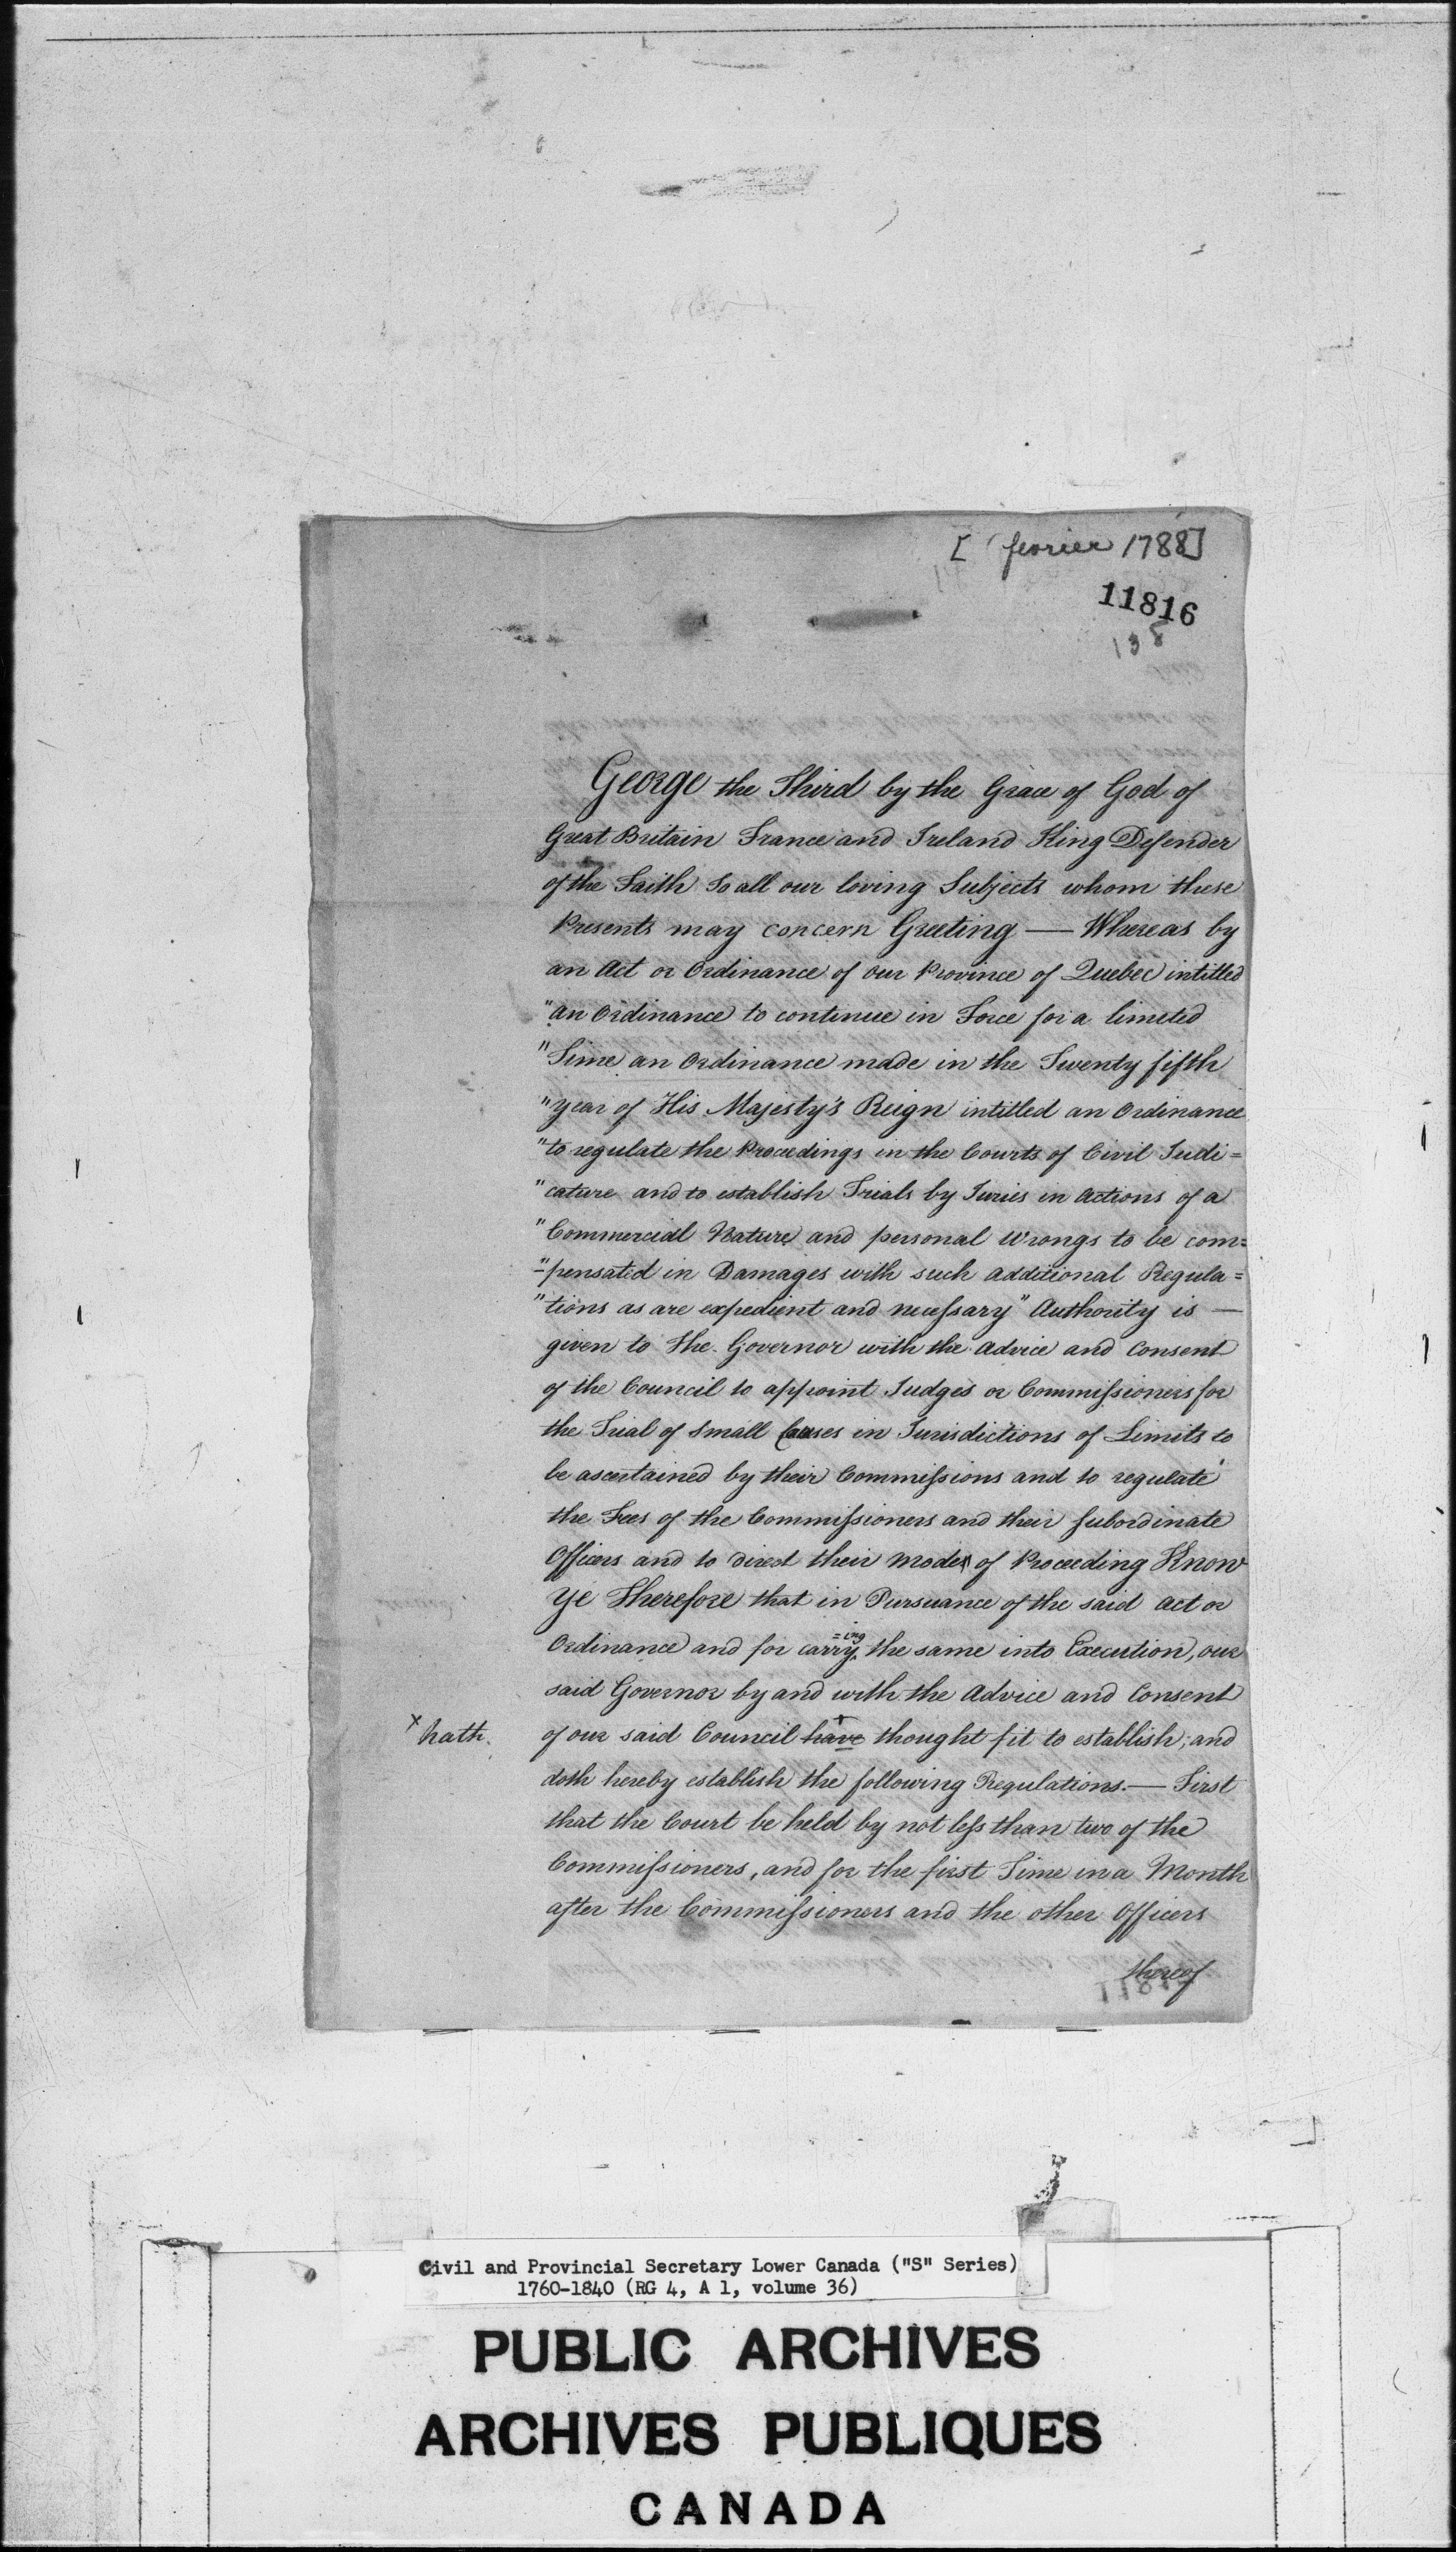 [ fevrier 1788]
11816
138
George the Third by the Grace of God of
Great Britain France and Ireland King Defender
of the Faith To all our loving Subjects whom these
Presents may concern Greeting — Whereas by
an Act or Ordinance of our Province of Quebec intitled
"an Ordinance to continue in Force for a limited
"Time an Ordinance made in the Twenty fifth
"year of His Majesty's Reign intitled an Ordinance
"to regulate the Proceedings in the Courts of Civil Judi=
"cature and to establish Trials by Juries in Actions of a
"Commercial Nature and personal Wrongs to be com=
"=pensated in Damages with such additional Regula=
"tions as are expedient and necessary" Authority is —
given to the Governor with the Advice and Consent
of the Council to appoint Judges or Commissioners for
the Trial of Small Causes in Jurisdictions of Limits to
be ascertained by their Commissions and to regulate
the Fees of the Commissioners and their Subordinate
Officers and to direct their mode of Proceeding Know
Ye Therefore that in Pursuance of the said Act or
=ing
Ordinance and for carry the same into Execution, our
said Governor by and with the Advice and Consent
x hath.
of our said Council have x thought fit to establish, and
doth hereby establish the following Regulations. — First
that the Court be held by not less than two of the
Commissioners, and for the first Time in a Month
after the Commissioners and the other Officers
thereof
Civil and Provincial Secretary Lower Canada ("S" Series)
1760-1840 (RG 4, A 1, volume 36)
PUBLIC ARCHIVES
ARCHIVES PUBLIQUES
CANADA